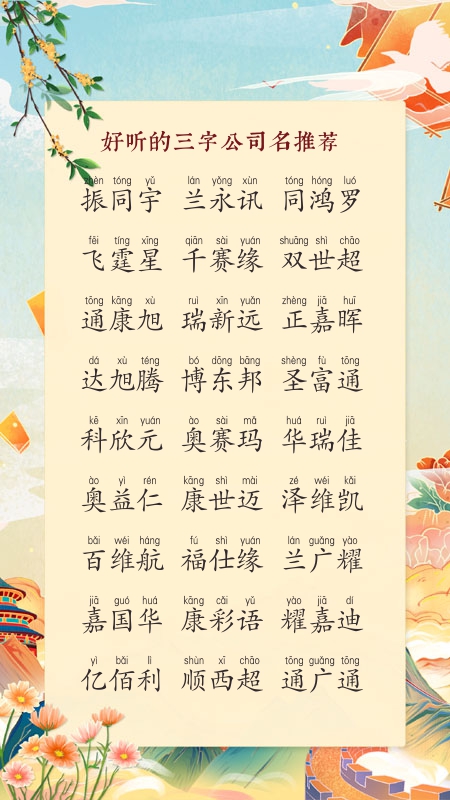 好听的三字公司名推荐
zhèn tóng yǔ lán yǒng xùn tóng hóng luó
振同宇 兰永讯 同鸿罗
fēi tíng xīng qiān sài yuán shuāng shì chāo
飞霆星 千赛缘 双世超
tōng kāng xù ruì xīn yuǎn zhèng jiā huī
通康旭 瑞新远 正嘉晖
dá xù téng bó dōng bāng shèng fù tōng
达旭腾 博东邦 圣富通
kē xīn yuán ào sài mǎ huá ruì jiā
科欣元 奥赛玛 华瑞佳
ào yì rén kāng shì mài zé wéi kǎi
奥益仁 康世迈 泽维凯
bǎi wéi háng fú shì yuán lán guǎng yào
百维航 福仕缘 兰广耀
jiā guó huá kāng cǎi yǔ yào jiā dí
嘉国华 康彩语 耀嘉迪
yì bǎi lì shùn xī chāo tōng guǎng tōng
亿佰利 顺西超 通广通